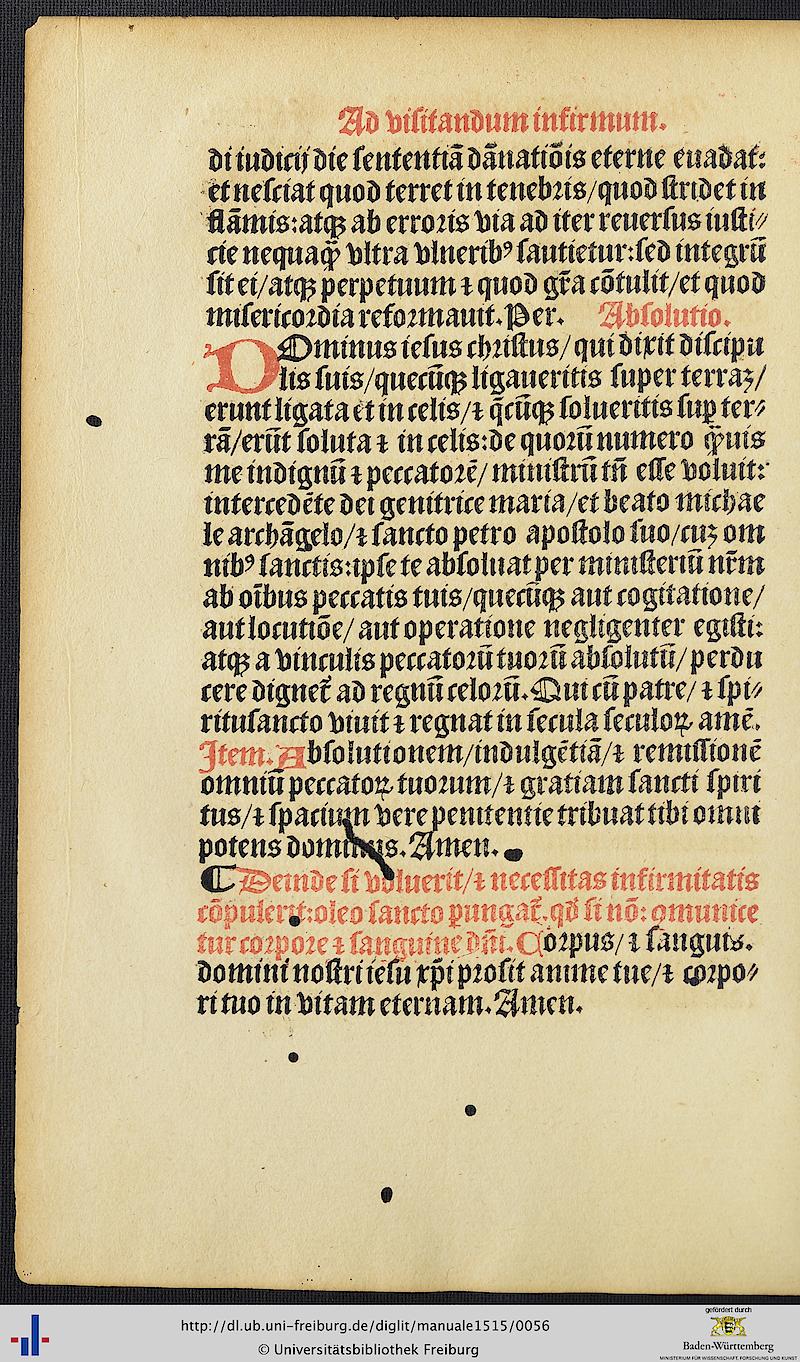 Ad visitandum infirmum.
di iudicij die sententiā dāuatiōis eterne euadat:
et nesciat quod terret in tenebris/quod stridet in
flāmis:atqꝫ ab erroris via ad iter reuersus iusti⸗
cie nequaq̄ʒ vltra vlneribꝰ sautietur:sed integrū
sit ei/atqꝫ perpetuum ⁊ quod gr̄a cōtulit/et quod
misericordia reformauit. Per. Absolutio.
DOminus iesus christus/ qui dixit discipu
lis suis/quecūqꝫ ligaueritis super terraꝫ/
erunt ligata et in celis/⁊ q̄cūqꝫ solueritis suꝑ ter⸗
rā/erūt soluta ⁊ in celis:de quorū numero q̄ʒuis
me indignū ⁊ peccatorē/ ministrū tn̄ esse voluit:
intercedēte dei genitrice maria/et beato michae
le archāgelo/⁊ sancto petro apostolo suo/cuꝫ om
nibꝰ sanctis:ipse te absoluat per ministeriū nr̄m
ab oībus peccatis tuis/quecūqꝫ aut cogitatione/
aut locutiōe/ aut operatione negligenter egisti:
atqꝫ a vinculis peccatorū tuorū absolutū/ perdu
cere dignet᷑ ad regnū celorū. Qui cū patre/ ⁊ spi⸗
ritusancto viuit ⁊ regnat in secula seculoꝝ amē.
Item. Absolutionem/indulgētiā/⁊ remissionē
omniū peccatoꝝ tuorum/⁊ gratiam sancti spiri
tus/⁊ spacium vere penitentie tribuat tibi omni
potens dominus. Amen.
¶ Deinde si voluerit/⁊ necessitas infirmitatis
cōpulerit:oleo sancto ꝑungat᷑. qd̄ si nō: ꝯmunice
tur corpore ⁊ sanguine dn̄i. Corpus/ ⁊ sanguis.
domini nostri iesu xp̄i prosit anime tue/⁊ corpo⸗
ri tuo in vitam eternam. Amen.
http://dl.ub.uni-freiburg.de/diglit/manuale1515/0056
© Universitätsbibliothek Freiburg
gefördert durch
Baden-Württemberg
MINISTERIUM FÜR WISSENSCHAFT, FORSCHUNG UND KUNST